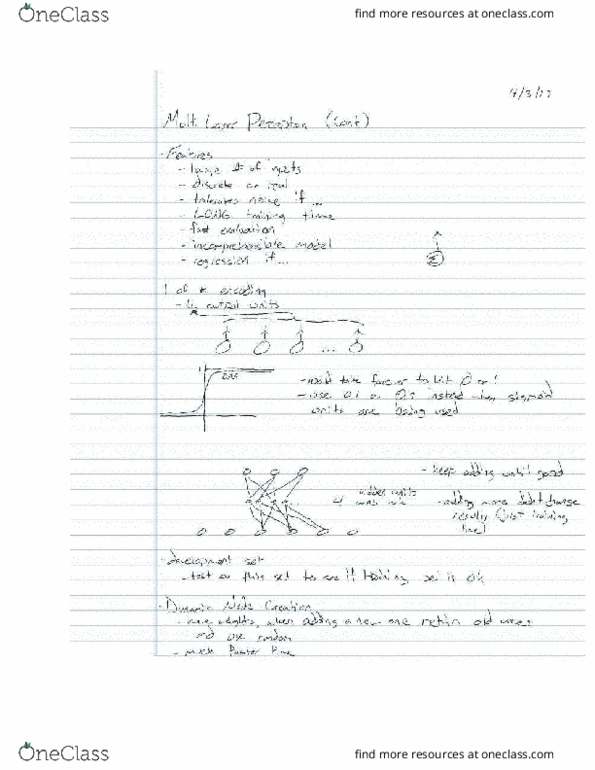 OneClass
find more resources at oneclass.com
4/3/17
Multi Layer Perceptron (cont)
- Features
- large # of inputs
- discrete or real
- tolerates noise if ...
- LONG training time
- fast evaluation
- incomprehensible model
- regression if ...
Σ
1 of k encoding
- k output units
...
1
- would take forever to hit 0 or 1
- use 0.1 or 0.9 instead when sigmoid
units are being used
- keep adding until good
4 hidden units
- adding more didn't change
results (just training
time)
- development set
- test on this set to see if training set is ok
- Dynamic Node Creation
- keep weights, when adding a new one retain old ones
and use random
- much faster time
OneClass
find more resources at oneclass.com